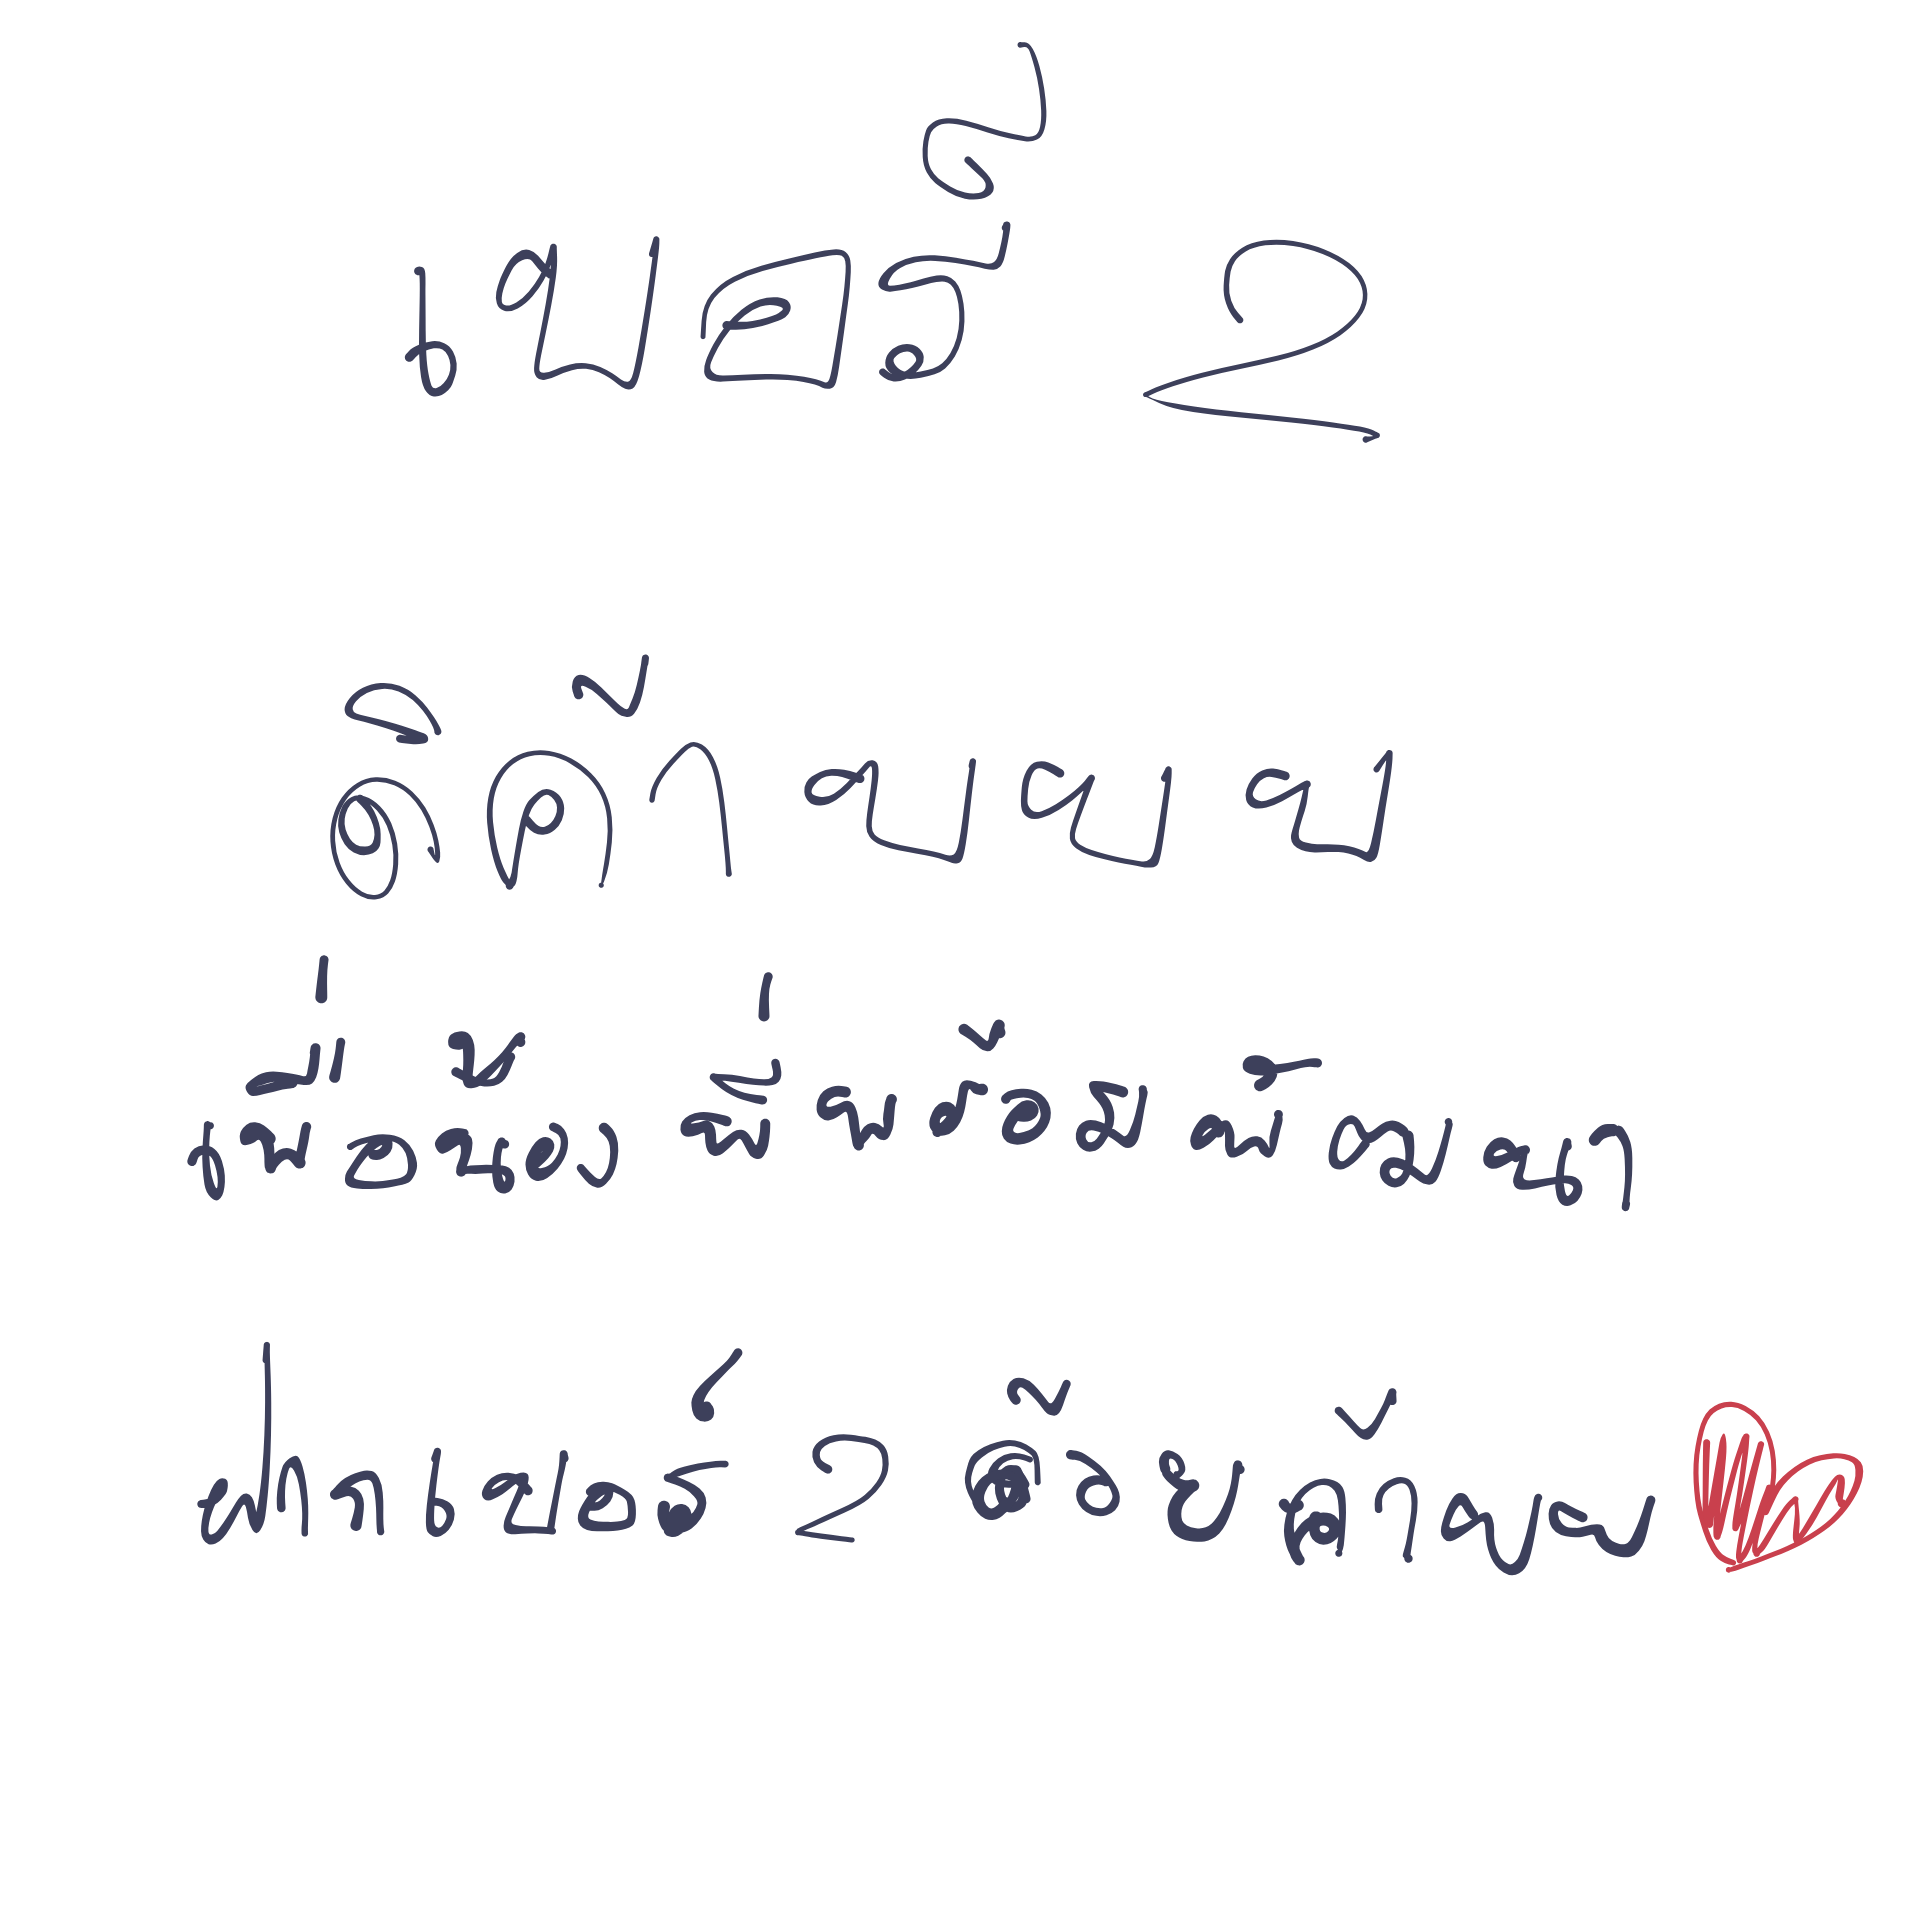 เบอร์ 2
ดิค้าบบบ
เพื่อ ที่พร้อมพัฒนา
ฝากเบอร์ 2 ด้วยค้าบบ